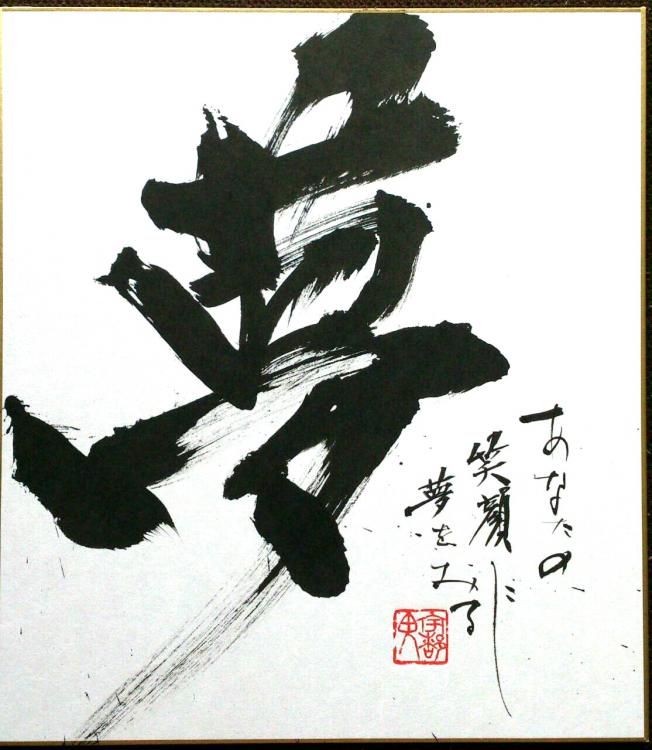 夢
あなたの
笑顔に
夢をみる